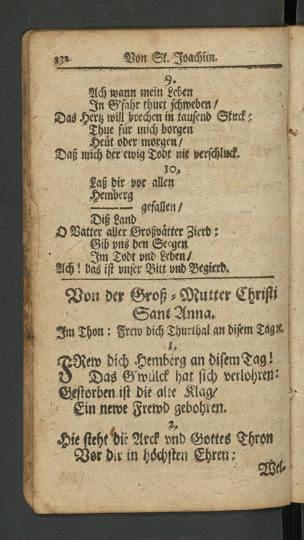 232. Von St. Joachim.
9.
Ach wann mein Leben
In G'fahr thuet schweben /
Das Hertz will brechen in tausend Stuck:
Thue für mich borgen
Heüt oder morgen /
Daß mich der ewig Todt nit verschluck.
10.
Laß dir vor allen
Hemberg
——— gefallen /
Diß Land
O Vatter aller Großvätter Zierd:
Gib vns den Seegen
Im Todt vnd Leben /
Ach! das ist vnser Bitt vnd Begierd.
Von der Groß-Mutter Christi
Sant Anna.
Im Thon: Frew dich Thurthal an disem Tag ꝛc.
1.
FRew dich Hemberg an disem Tag!
Das G'wülck hat sich verlohren:
Gestorben ist die alte Klag /
Ein newe Frewd gebohren.
2.
Hie steht die Arck vnd Gottes Thron
Vor dir in höchsten Ehren:
Wel-